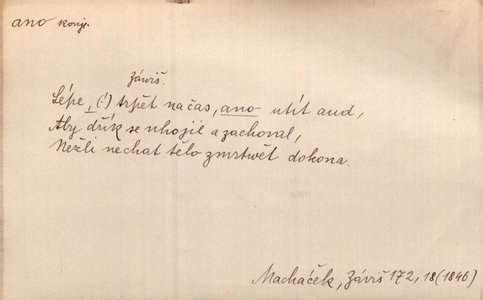 ano konj.
Záviš.
Lépe, (!) trpět na čas, ano utít aud,
Aby dřík se uhojil a zachoval,
Nežli nechat tělo zmrtwět dokona.
Macháček, Záviš 172, 18 (1846)